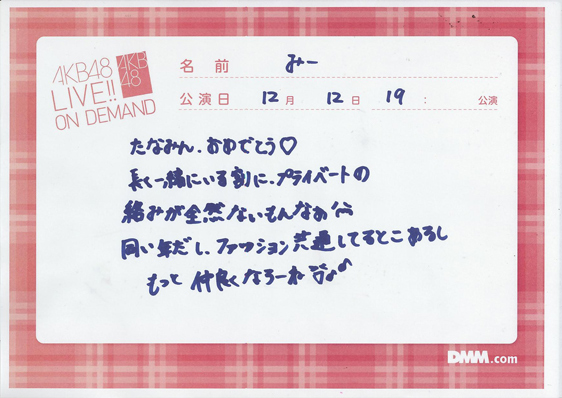 AKB48
LIVE!!
ON DEMAND
AKB
48
名前 みー
公演日 12月 12日 19: 公演
たなみん、おめでとう♡
長く一緒にいる割に、プライベートの
絡みが全然ないもんなぁ
同い年だし、ファッション共通してるとこあるし
もっと仲良くなろーね
DMM.com